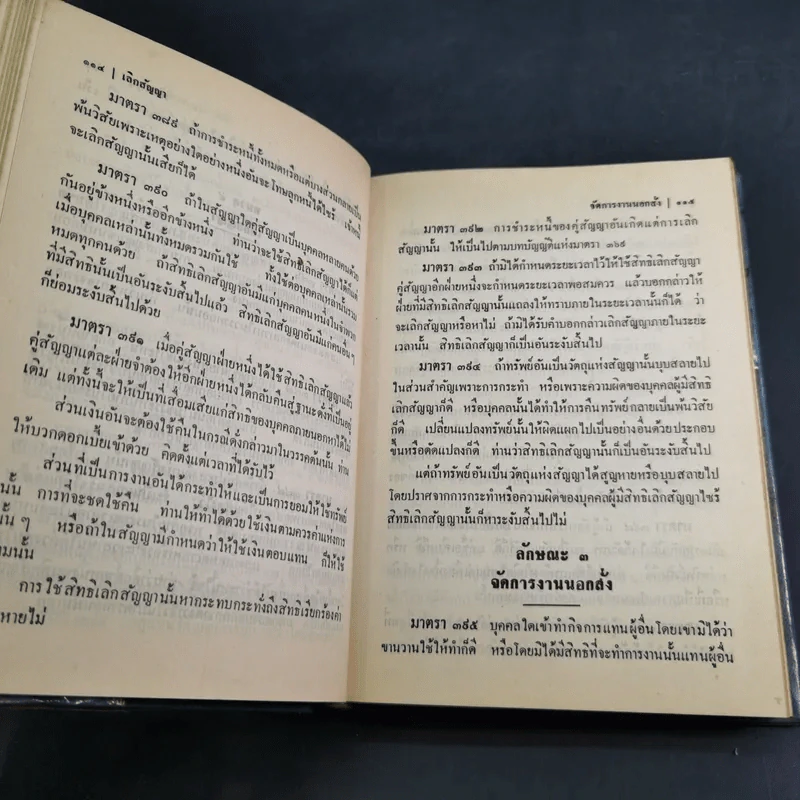 ๑๑๔ | เลิกสัญญา
มาตรา ๓๘๙ ถ้าการชำระหนี้ทั้งหมดหรือแต่บางส่วนกลายเป็น
พ้นวิสัยเพราะเหตุอย่างใดอย่างหนึ่งอันจะโทษลูกหนี้ได้ไซร้ เจ้าหนี้
จะเลิกสัญญานั้นเสียก็ได้
มาตรา ๓๙๐ ถ้าในสัญญาใดคู่สัญญาเป็นบุคคลหลายคนด้วย
กันอยู่ข้างหนึ่งหรืออีกข้างหนึ่ง ท่านว่าจะใช้สิทธิเลิกสัญญาได้ก็แต่
เมื่อบุคคลเหล่านั้นทั้งหมดรวมกันใช้ ทั้งใช้ต่อบุคคลเหล่านั้นรวม
หมดทุกคนด้วย ถ้าสิทธิเลิกสัญญาอันมีแก่บุคคลคนหนึ่งในจำพวก
ที่มีสิทธินั้นเป็นอันระงับสิ้นไปแล้ว สิทธิเลิกสัญญาอันมีแก่คนอื่น ๆ
ก็ย่อมระงับสิ้นไปด้วย
มาตรา ๓๙๑ เมื่อคู่สัญญาฝ่ายหนึ่งได้ใช้สิทธิเลิกสัญญาแล้ว
คู่สัญญาแต่ละฝ่ายจำต้องให้อีกฝ่ายหนึ่งได้กลับคืนสู่ฐานะดังที่เป็นอยู่
เดิม แต่ทั้งนี้จะให้เป็นที่เสื่อมเสียแก่สิทธิของบุคคลภายนอกหาได้ไม่
ส่วนเงินอันจะต้องใช้คืนในกรณีดังกล่าวมาในวรรคต้นนั้น ท่าน
ให้บวกดอกเบี้ยเข้าด้วย คิดตั้งแต่เวลาที่ได้รับไว้
ส่วนที่เป็นการงานอันได้กระทำให้และเป็นการยอมให้ใช้ทรัพย์
นั้น การที่จะชดใช้คืน ท่านให้ทำได้ด้วยใช้เงินตามควรค่าแห่งการ
นั้น ๆ หรือถ้าในสัญญามีกำหนดว่าให้ใช้เงินตอบแทน ก็ให้ใช้
มนั้น
การใช้สิทธิเลิกสัญญานั้นหากระทบกระทั่งถึงสิทธิเรียกร้องค่า
หายไม่
จัดการงานนอกสั่ง | ๑๑๕
มาตรา ๓๙๒ การชำระหนี้ของคู่สัญญาอันเกิดแต่การเลิก
สัญญานั้น ให้เป็นไปตามบทบัญญัติแห่งมาตรา ๓๖๙
มาตรา ๓๙๓ ถ้ามิได้กำหนดระยะเวลาไว้ให้ใช้สิทธิเลิกสัญญา
คู่สัญญาอีกฝ่ายหนึ่งจะกำหนดระยะเวลาพอสมควร แล้วบอกกล่าวให้
ฝ่ายที่มีสิทธิเลิกสัญญานั้นแถลงให้ทราบภายในระยะเวลานั้นก็ได้ ว่า
จะเลิกสัญญาหรือหาไม่ ถ้ามิได้รับคำบอกกล่าวเลิกสัญญาภายในระยะ
เวลานั้น สิทธิเลิกสัญญาก็เป็นอันระงับสิ้นไป
มาตรา ๓๙๔ ถ้าทรัพย์อันเป็นวัตถุแห่งสัญญานั้นบุบสลายไป
ในส่วนสำคัญเพราะการกระทำ หรือเพราะความผิดของบุคคลผู้มีสิทธิ
เลิกสัญญาก็ดี หรือบุคคลนั้นได้ทำให้การคืนทรัพย์กลายเป็นพ้นวิสัย
ก็ดี เปลี่ยนแปลงทรัพย์นั้นให้ผิดแผกไปเป็นอย่างอื่นด้วยประกอบ
ขึ้นหรือดัดแปลงก็ดี ท่านว่าสิทธิเลิกสัญญานั้นก็เป็นอันระงับสิ้นไป
แต่ถ้าทรัพย์อันเป็นวัตถุแห่งสัญญาได้สูญหายหรือบุบสลายไป
โดยปราศจากการกระทำหรือความผิดของบุคคลผู้มีสิทธิเลิกสัญญาไซร้
สิทธิเลิกสัญญานั้นก็หาระงับสิ้นไปไม่
ลักษณะ ๓
จัดการงานนอกสั่ง
มาตรา ๓๙๕ บุคคลใดเข้าทำกิจการแทนผู้อื่นโดยเขามิได้ว่า
ขานวานใช้ให้ทำก็ดี หรือโดยมิได้มีสิทธิที่จะทำการงานนั้นแทนผู้อื่น